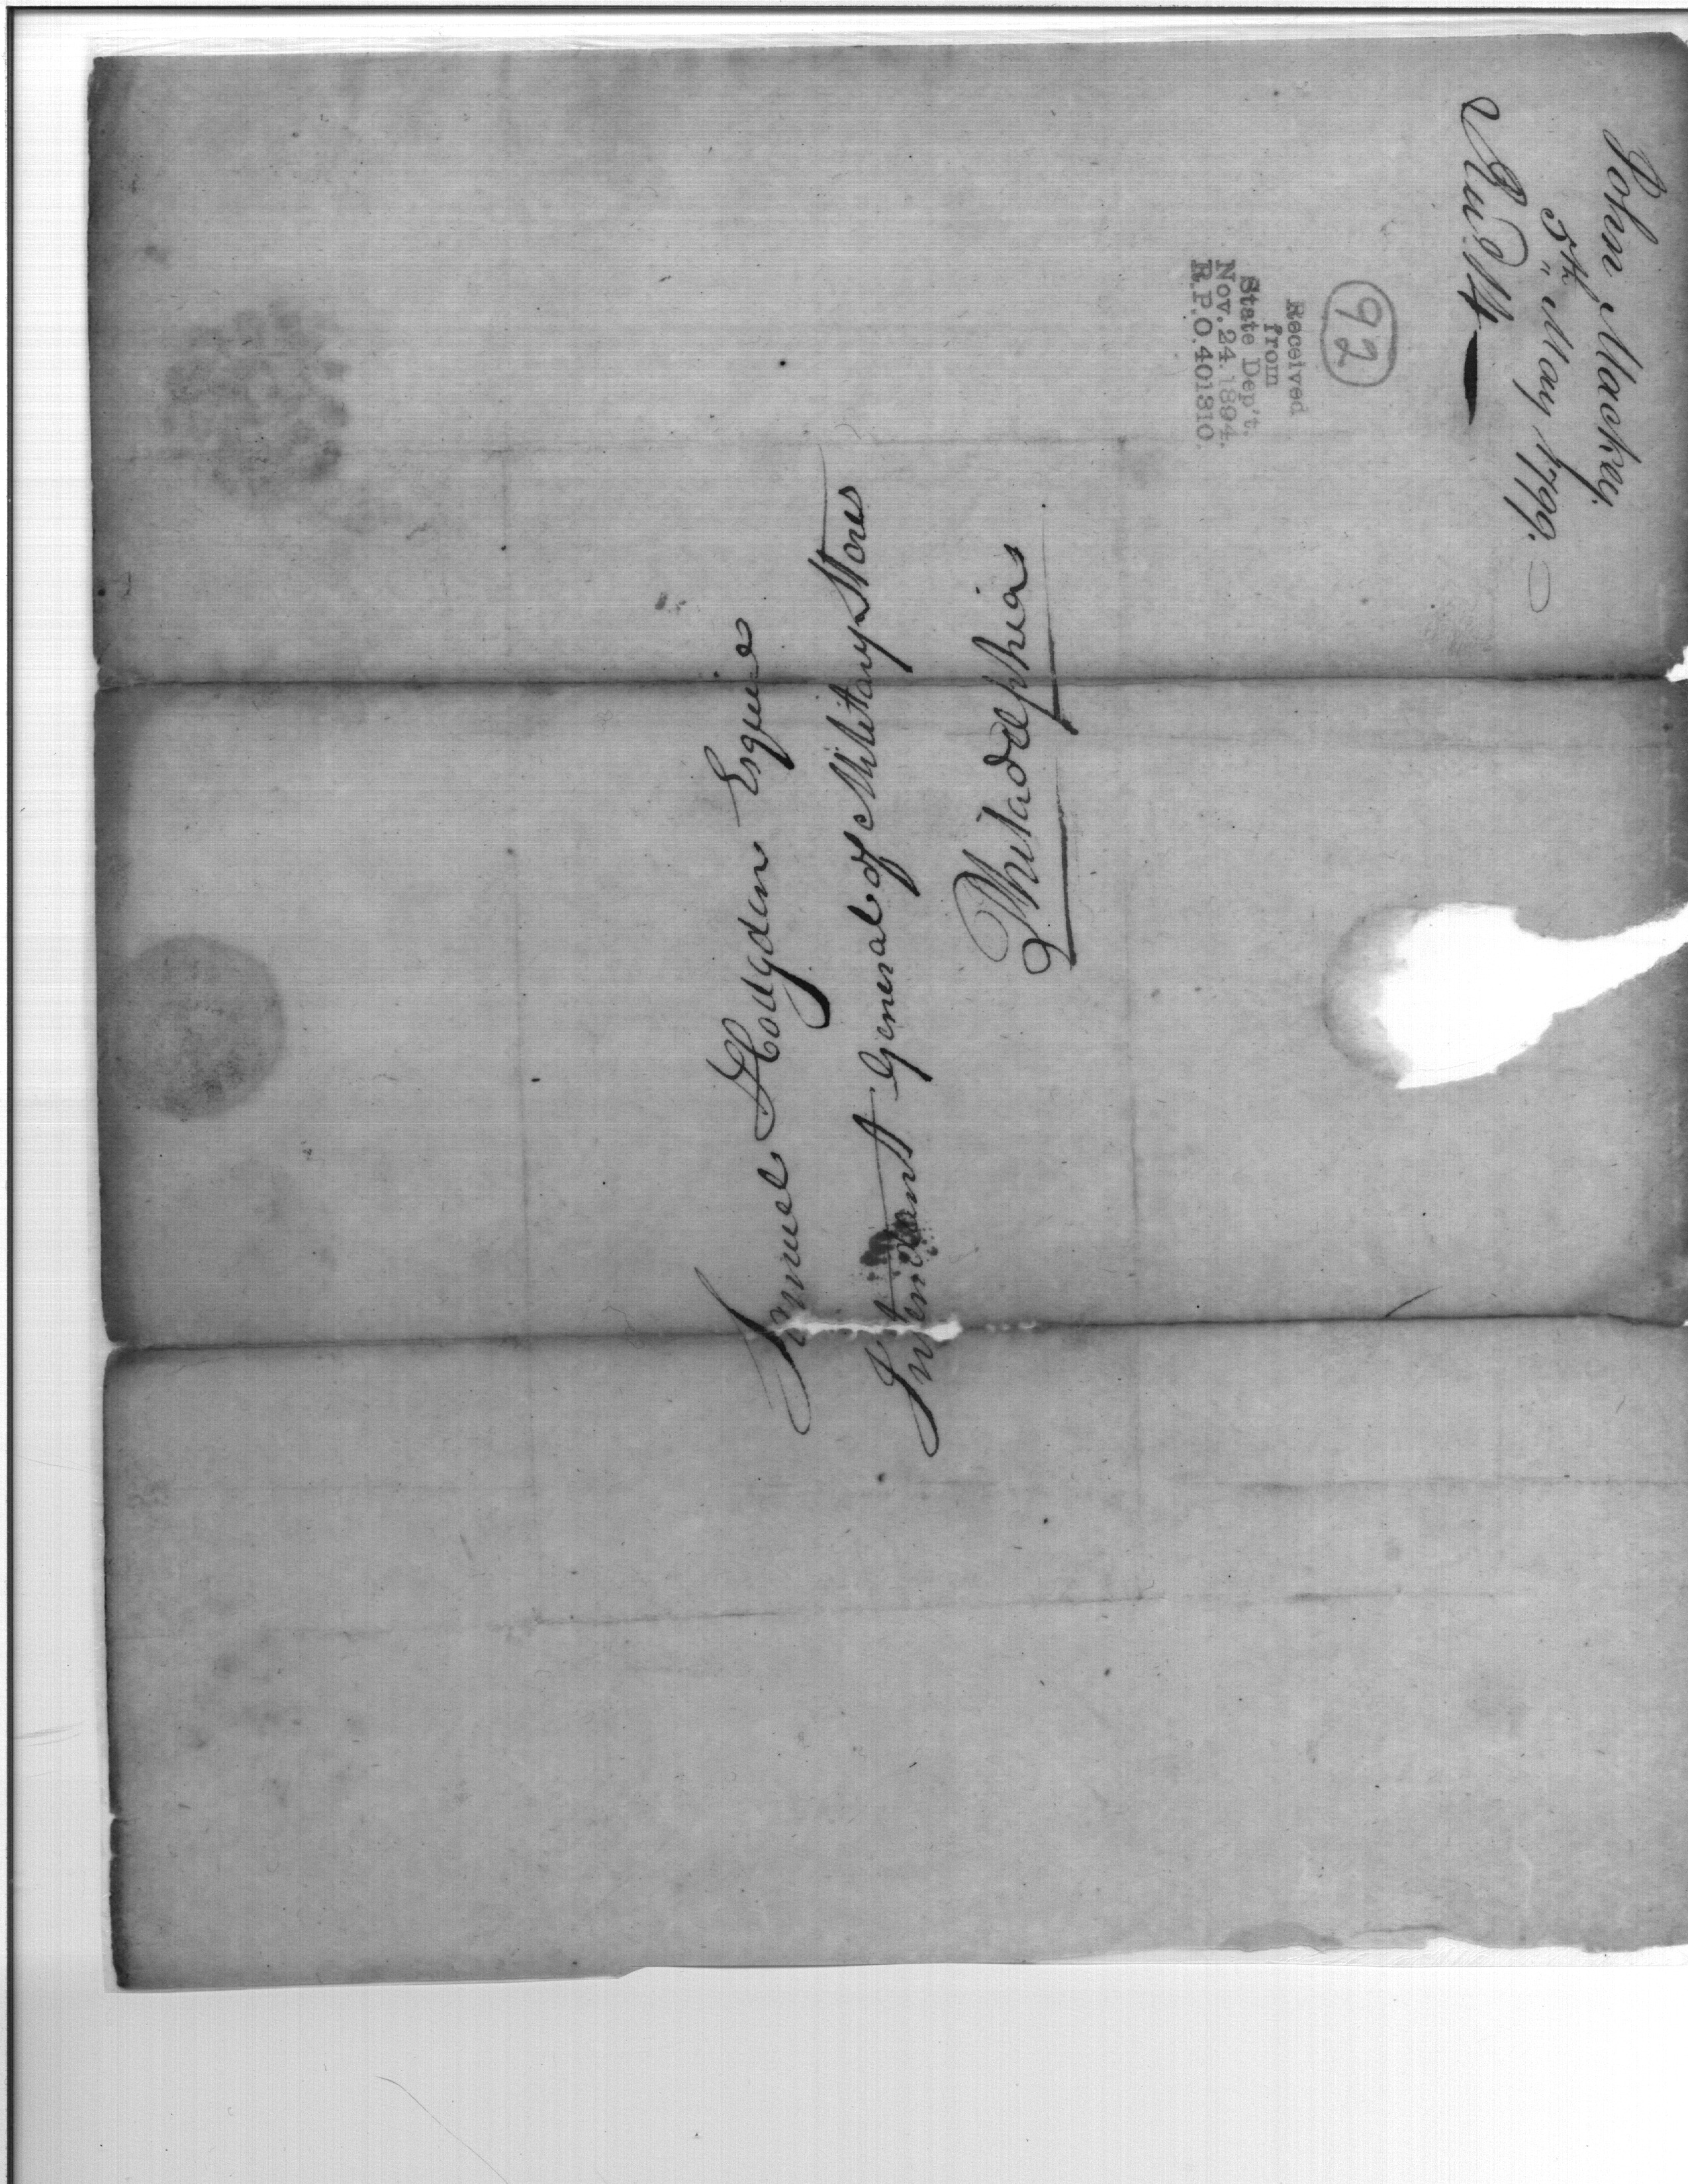 John Mackey.
5th May 1799.
92
Received
from
State Dep't.
Nov. 24. 1894.
R.P.O. 401310.
Samuel Hodgdon Esquire
Intendant General of Military Stores
Philadelphia